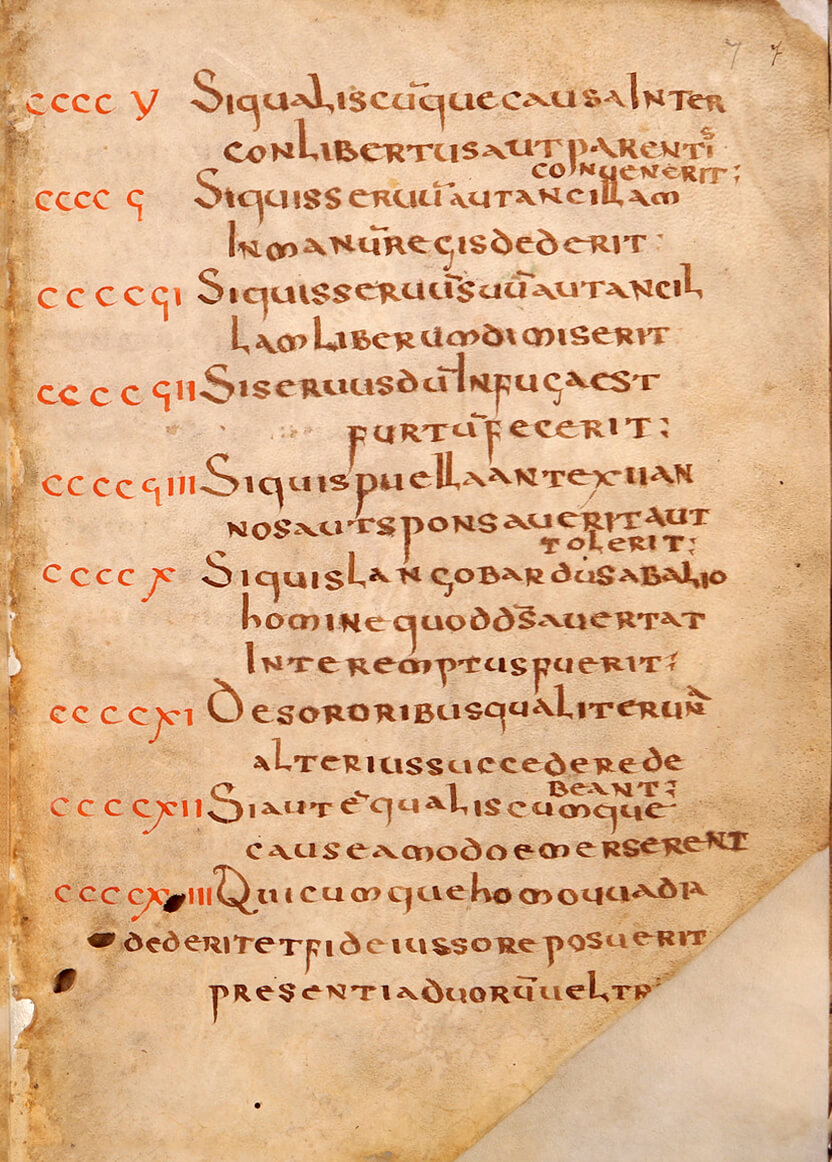 7 7
CCCC V Siqualiscūquecausainter
conlibertusautparentis
conuenerit;
CCCC ϛ Siquisseruūautancillam
inmanūregisdederit:
CCCCϛI Siquisseruūsuūautancil
lamliberumdimiserit
CCCCϛII Siseruusdūinfugaest
furtūfecerit;
CCCCϛIII Siquispuellaantexiian
nosautsponsaueritaut
tolerit;
CCCC X Siquislangobardusabalio
hominequoddsauertat
interemptusfuerit;
CCCCXI Desororibusqualiterunā
alteriussuccederede
beant;
CCCCXII Siautēqualiscumque
causeamodoemerserent
CCCCX III Quicumquehomouuadia
dederitetfideiussoreposuerit
presentiaduorūueltri